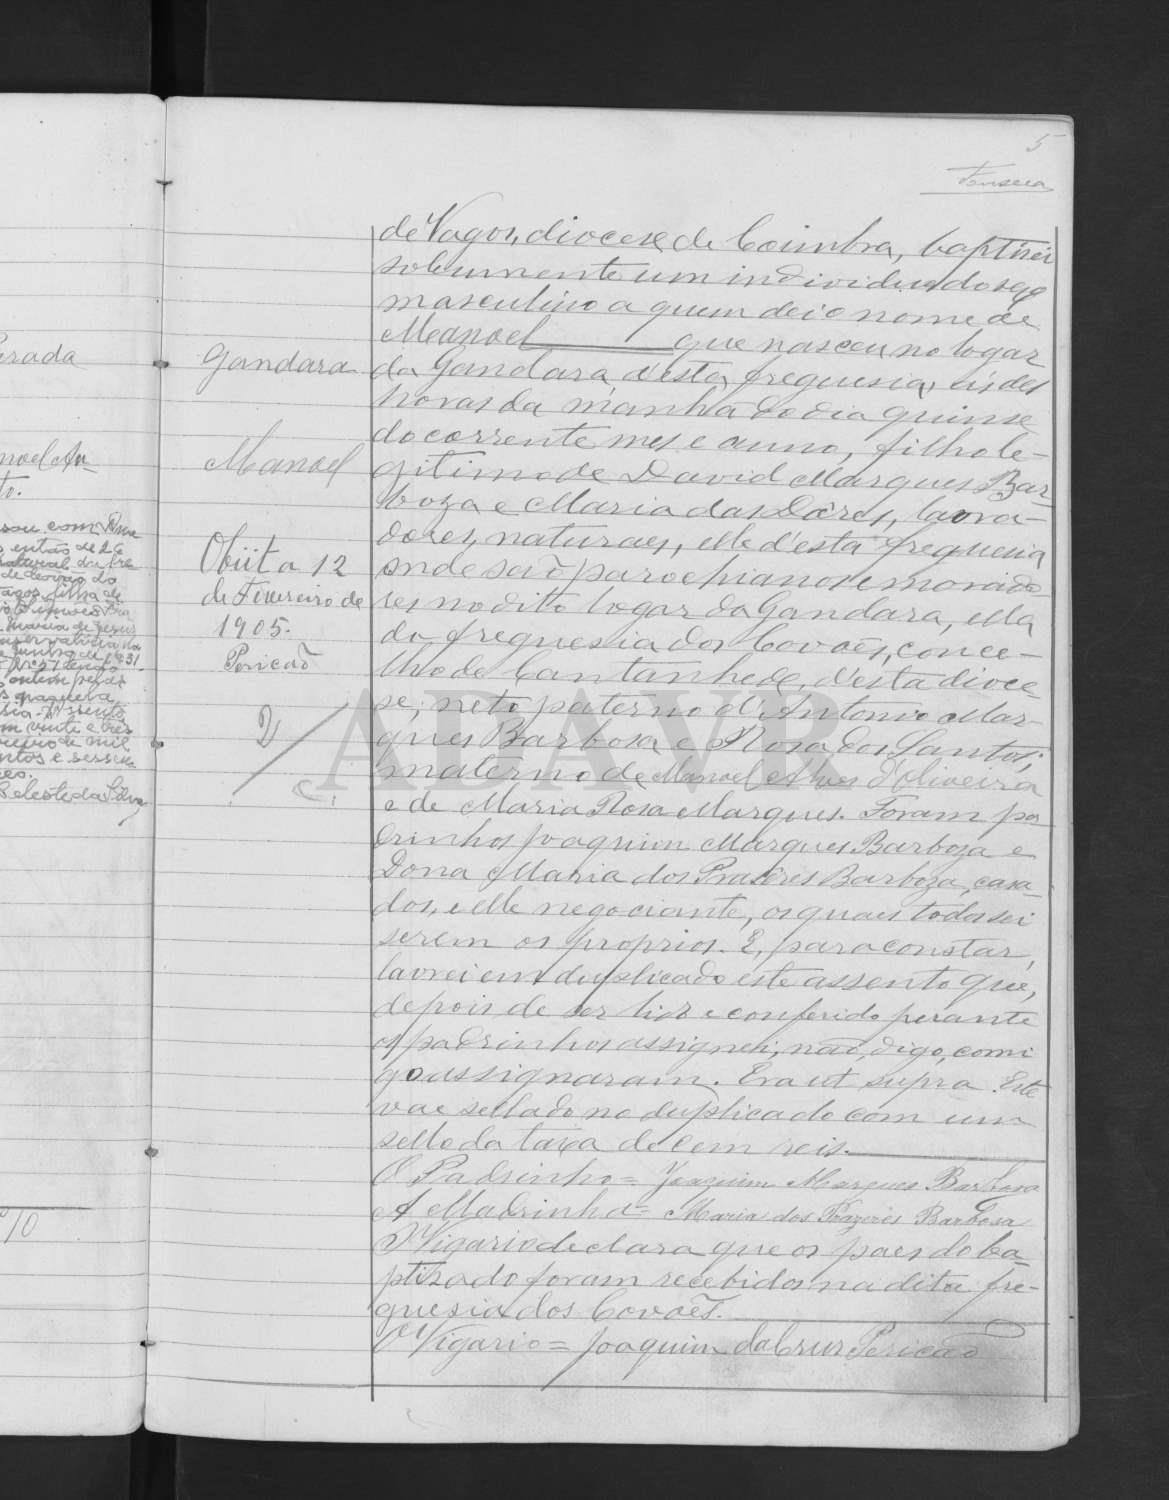 5
Fonseca
de Vagos, diocese de Coimbra, baptisei
solemnemente um individuo do sexo
masculino a quem dei o nome de
Manoel que nasceu no logar
da Gandara, d'esta freguesia, ás des
horas da manhã do dia quinse
do corrente mes e anno, filho le-
gitimo de David Marques Bar-
boza e Maria das Dôres, lavra-
dores, naturaes, elle d'esta freguesia
onde são parochianos e morado
res no dito logar da Gandara, ella
da freguesia dos Covões, conce-
lho de Cantanhede, d'esta dioce
se; neto paterno d'Antonio Mar-
ques Barbosa e Rosa dos Santos;
materno de Manoel Alves d'Oliveira
e de Maria Rosa Marques. Foram pa
drinhos Joaquim Marques Barboza e
Dona Maria dos Praseres Barboza, casa-
dos, elle negociante, os quaes todos sei
serem os proprios. E, para constar,
lavrei em duplicado este assento que,
depois de ser lido e conferido perante
os padrinhos assignei, não, digo, comi
go assignaram. Era ut supra. Este
vae sellado no duplicado com um
sello da taxa de cem reis.
O Padrinho = Joaquim Marques Barbosa
A Madrinha = Maria dos Prazeres Barbosa
O Vigario declara que os paes do ba-
ptisado foram recebidos na dita fre-
guesia dos Covões.
O Vigario = Joaquim da Crus Pericão
Gandara
Manoel
Obiit a 12
de Fevereiro de
1905.
Pericão
ADAVR
erada
noel An
to.
sou com
então de 26
natural da fre
Maria de Jesus
vinte e tres
mil
ntos e sessen
Celeste da Silva